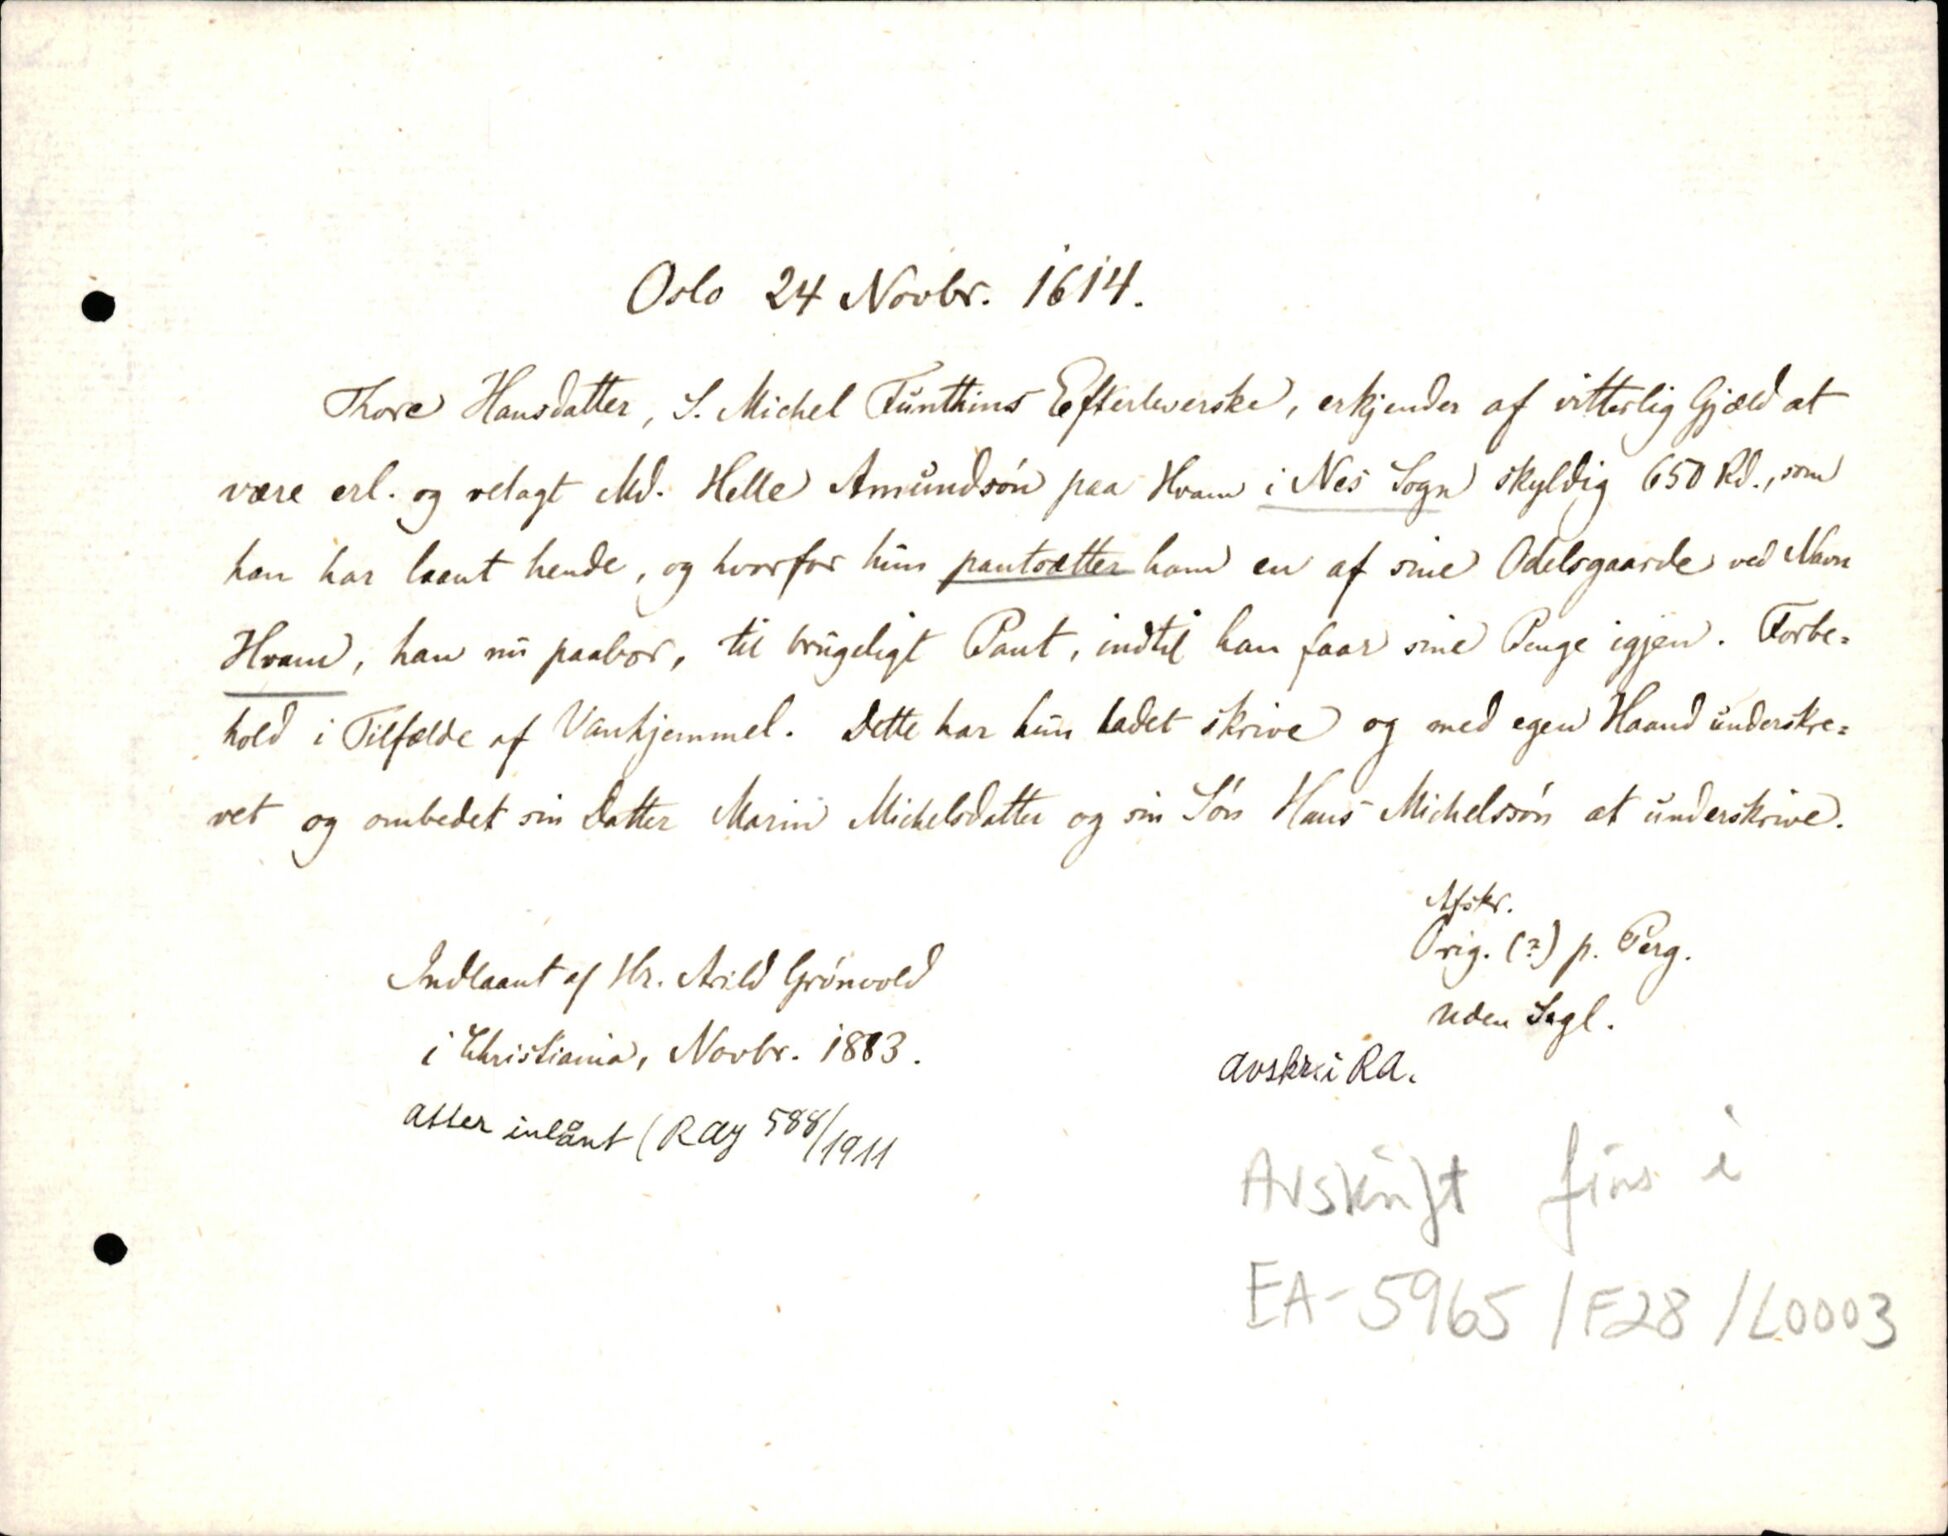 Oslo 24 Novbr. 1614.
Thore Hansdatter, S. Michel Funthins Efterleverske, erkjender af vitterlig Gjæld at
være erl. og velagt Md. Helle Amundsón paa Hvam i Nes Sogn skyldig 650 Rd., som
han har laant hende, og hvorfor hun pantsætter ham en af sine Odelsgaarde ved Navn
Hvam, han nu paabor, til brugeligt Pant, indtil han faar sine Penge igjen. Forbe=
hold i Tilfælde af Vanhjemmel. Dette har hun ladet skrive og med egen Haand underskre=
vet og ombedet sin Datter Marin Michelsdatter og sin Són Hans Michelssón at underskrive.
Afskr.
Orig. (?) p. Perg.
uden Segl.
Indlaant af Hr. Arild Grónvold
i Christiania, Novbr. 1883.
avskr. i RA.
atter inlånt (RAJ 588/1911
Avskrift fins i
EA-5965/F28/L0003